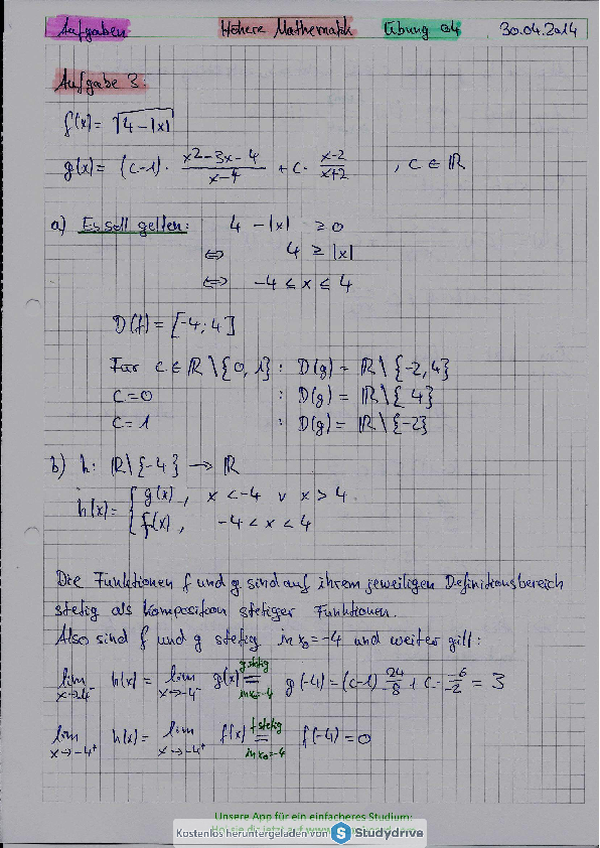 Aufgaben Höhere Mathematik Übung 04 30.04.2014
Aufgabe 3:
f(x) = √(4-|x|)
g(x) = (c-1) · (x²-3x-4)/(x-4) + c · (x-2)/(x+2) , c ∈ ℝ
a) Es soll gelten: 4 - |x| ≥ 0
⇔ 4 ≥ |x|
⇔ -4 ≤ x ≤ 4
D(f) = [-4; 4]
Für c ∈ ℝ\{0, 1} : D(g) = ℝ\{-2, 4}
c = 0 : D(g) = ℝ\{4}
c = 1 : D(g) = ℝ\{-2}
b) h: ℝ\{-4} → ℝ
h(x) = { g(x) , x < -4 ∨ x > 4
f(x) , -4 < x < 4
Die Funktionen f und g sind auf ihrem jeweiligen Definitionsbereich
stetig als Komposition stetiger Funktionen.
Also sind f und g stetig in x₀ = -4 und weiter gilt:
lim x→-4⁻ h(x) = lim x→-4⁻ g(x) = g stetig in x₀=-4 g(-4) = (c-1) 24/-8 + c · -6/-2 = 3
lim x→-4⁺ h(x) = lim x→-4⁺ f(x) = f stetig in x₀=-4 f(-4) = 0
Unsere App für ein einfacheres Studium:
Kostenlos heruntergeladen von Studydrive